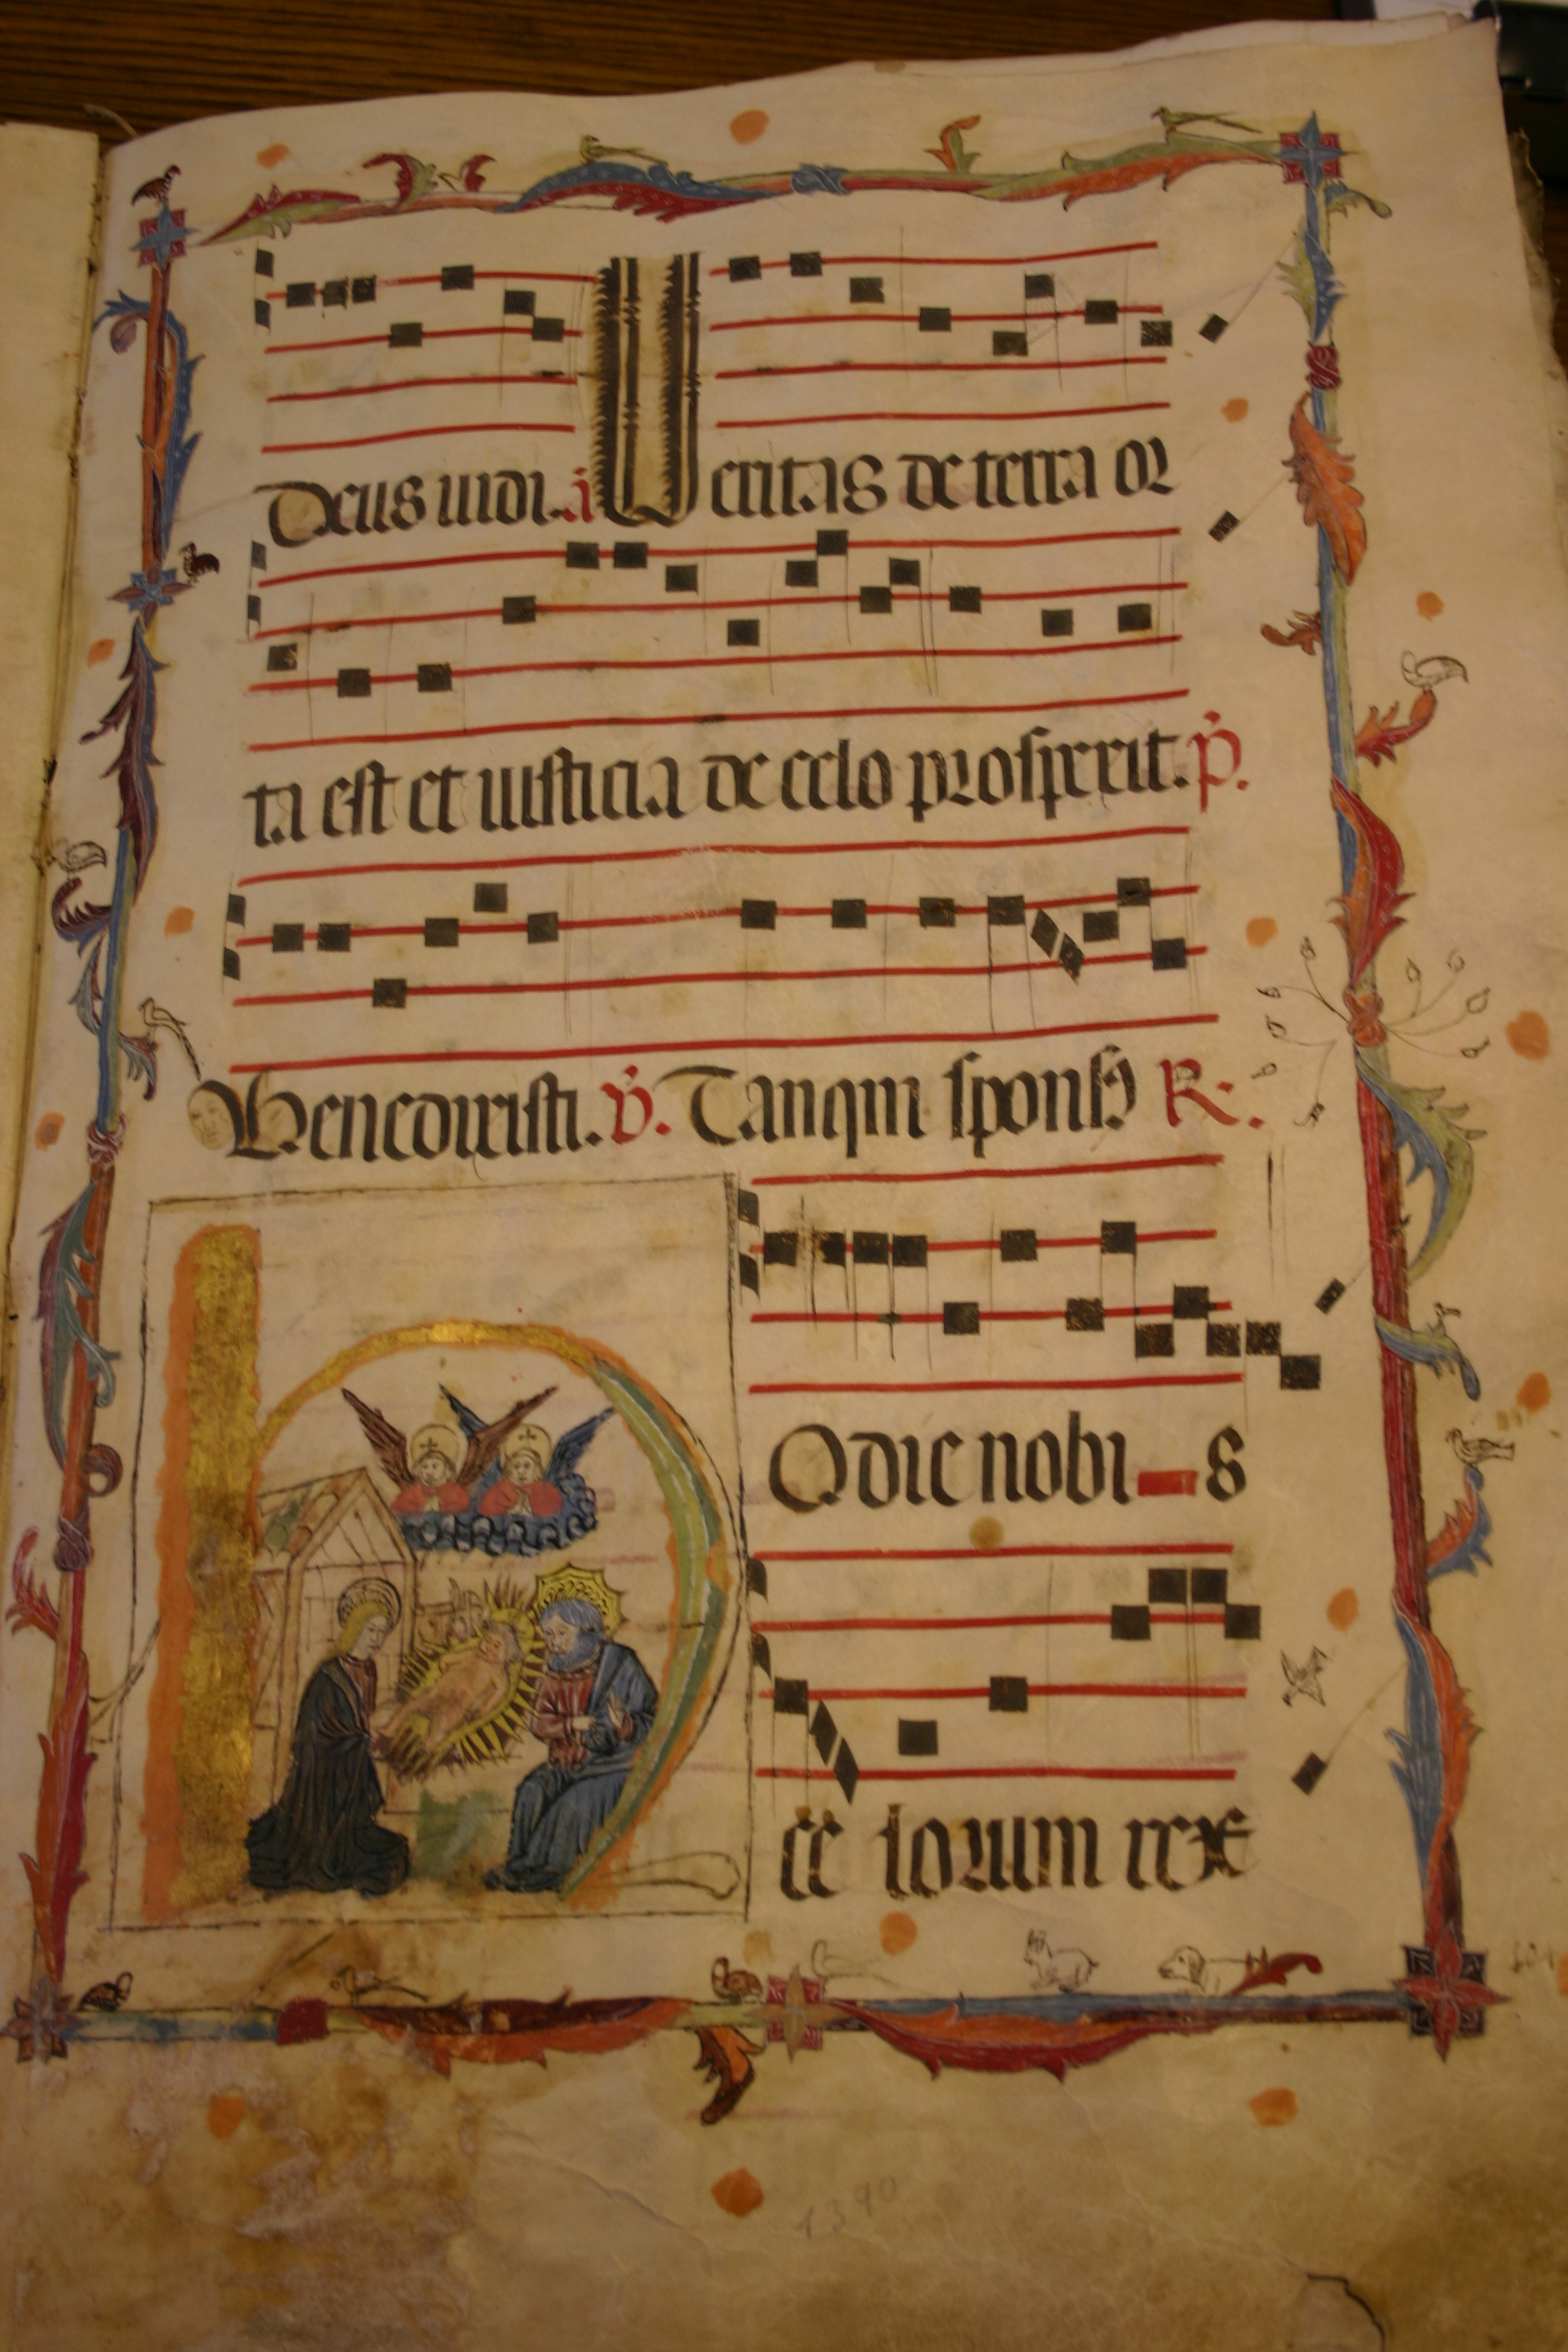 Deus iudi. a Ueritas de terra or
ta est et iusticia de celo prospexit. p̃.
Benedixisti. v̉. Tanqm sponsꝰ R.
hOdie nobi s
ce lorum rex
1390